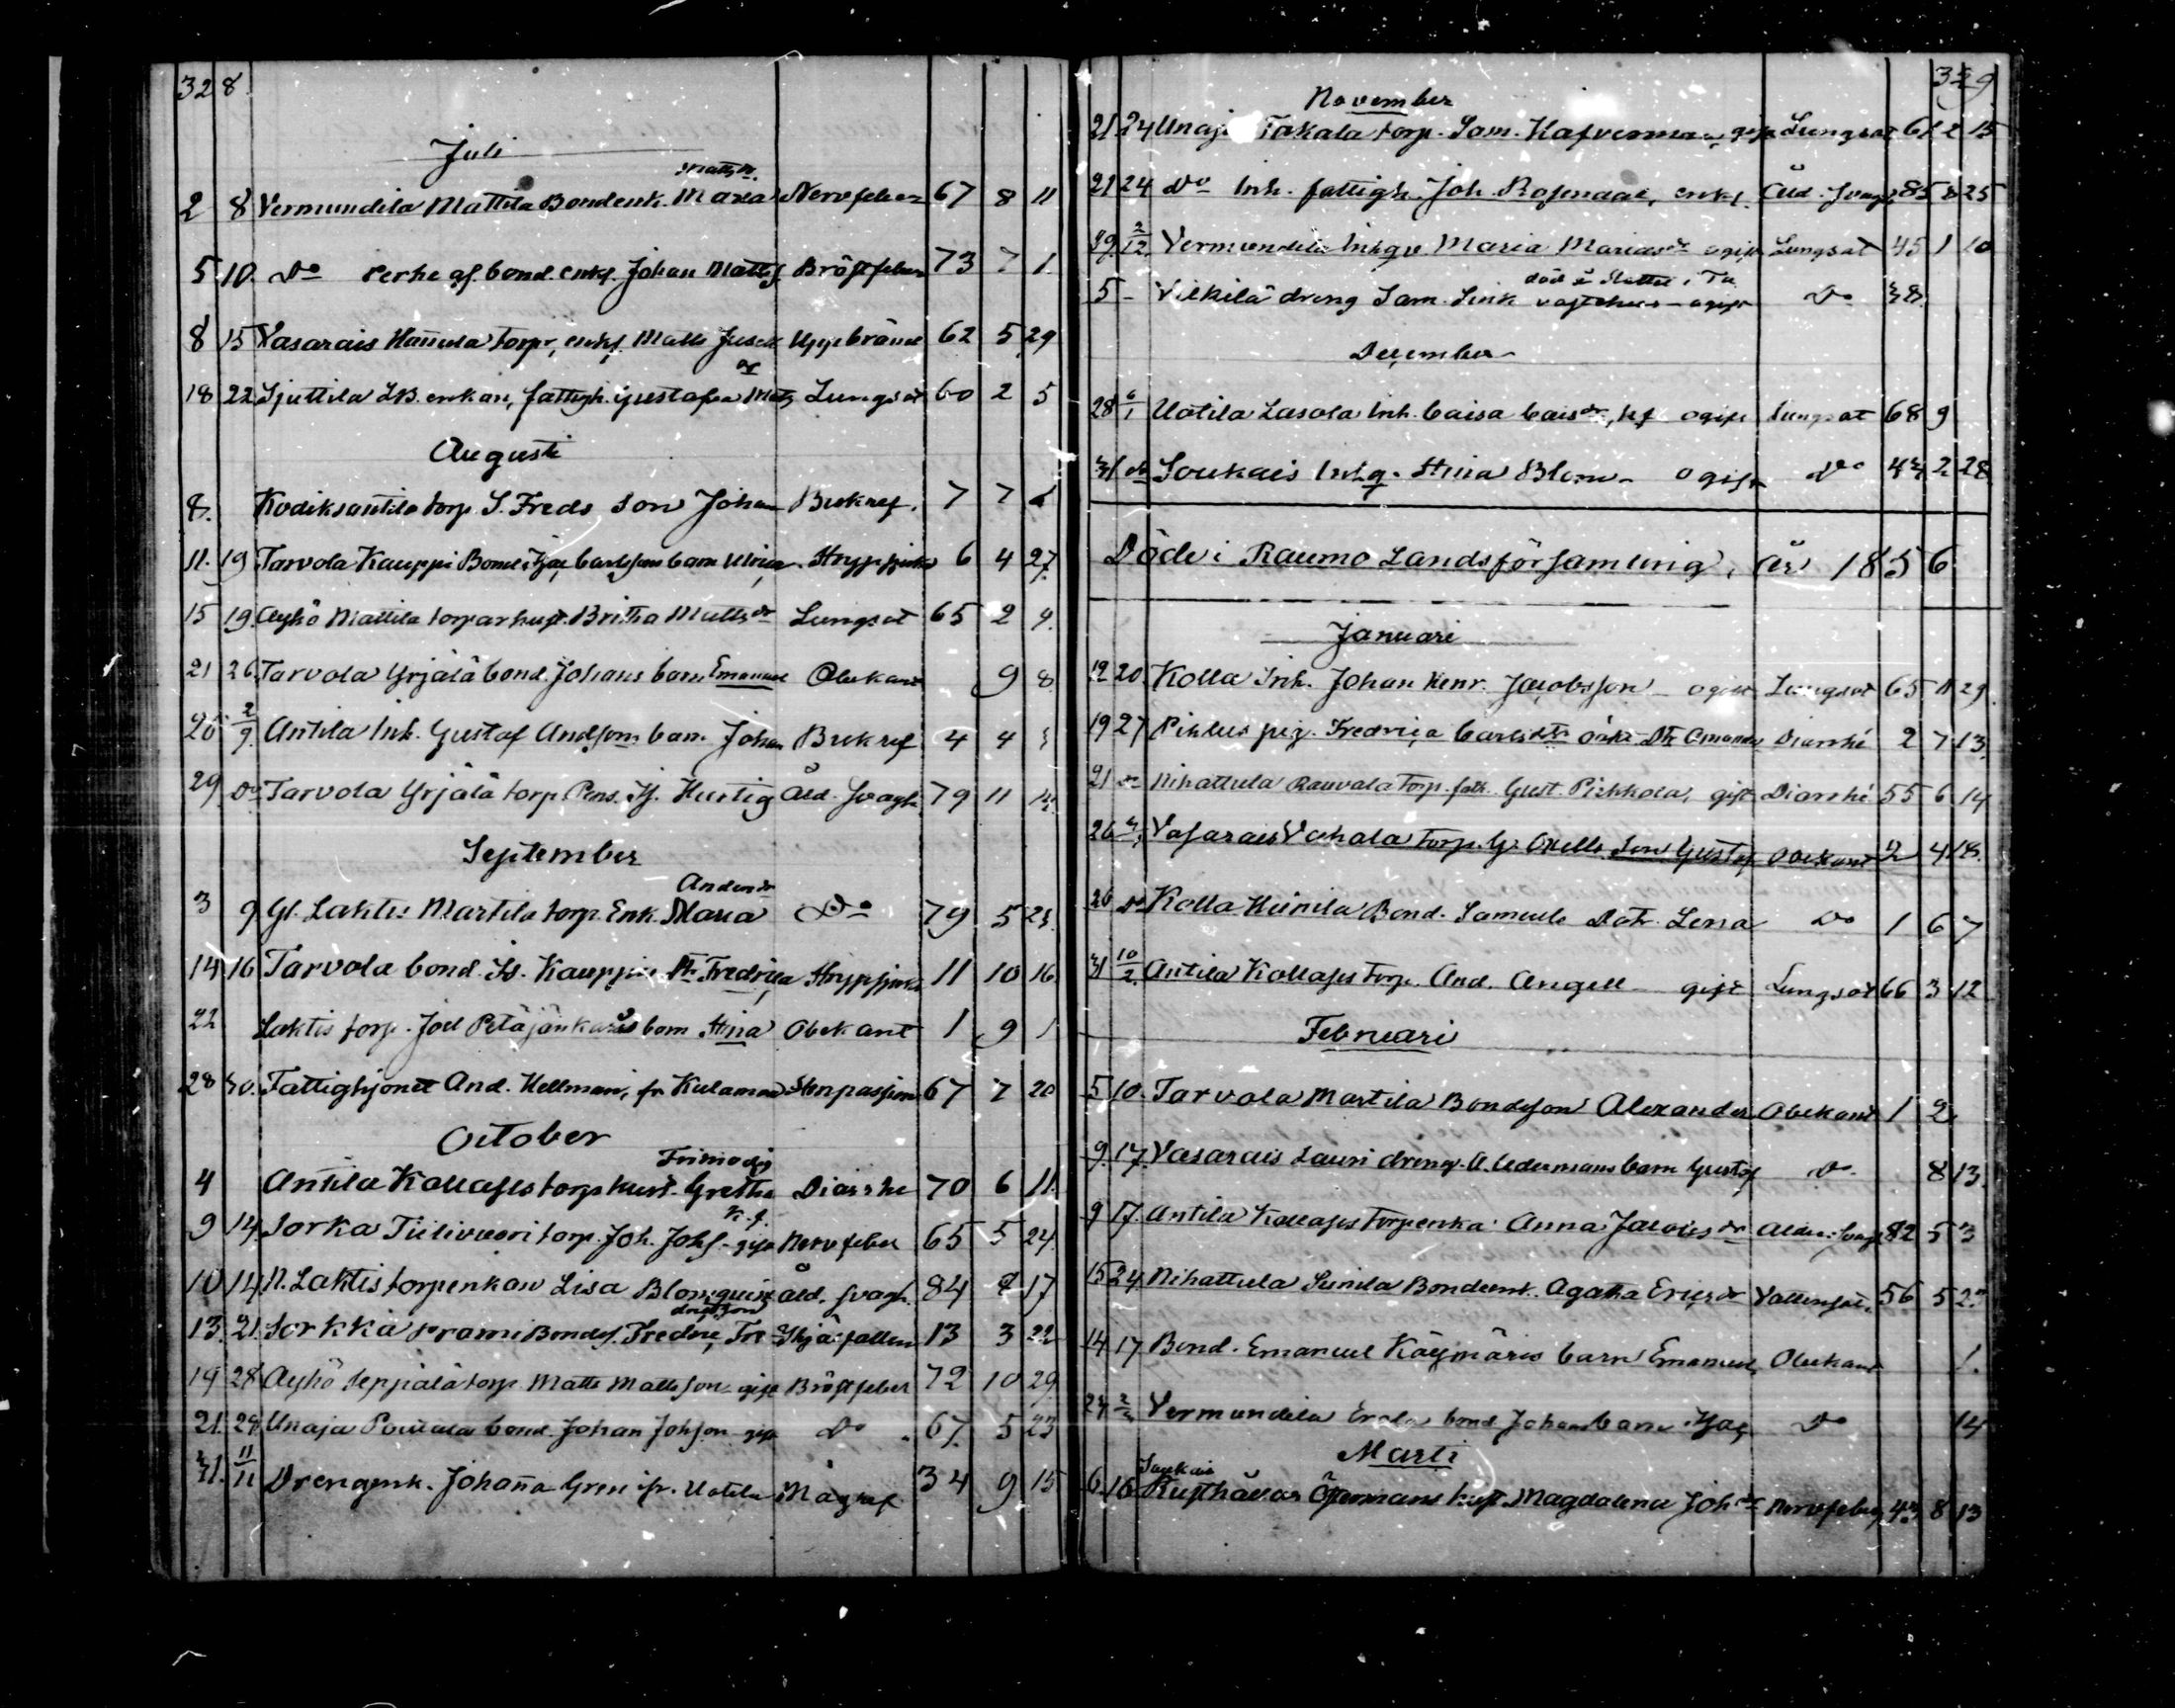 328
Juli
Mattsdr.
2 8 Vermundila Mattila Bondenk. Maria Nervfeber 67 8 11
5 10. Do Perhe af. bond. enkl. Johan Mattsf. Bröstfeber 73 7 1
8 15 Vasarais Hannula torp, enkl. Matts Upp bränd 62 5 29
18 22 Sjuttila enkan, fattigh. Gustafva Lungsot 60 2 5
Augusti
8. Kodiksantila torp. S. Freds Son Johan Bukref. 7 7
11. 19 Tarvola Kauppi Bond. Isac Carlssons barn Ulrica Stryppsjuka 6 4 27.
15 19. Ayhö Mattila torparhust. Britha Mattsdr Lungsot 65 2 9.
21 26. Tarvola Yrjälä bond. Johans barn Emanuel Obekant 9 8
26 2/9. Antila Inh. Gustaf Andssons barn Johan Bukref 4 4 3
29 Do Tarvola Yrjälä torp. Pens. Hurtig Åld. svagh. 79 11
September
Andersdr
3 9 Gl. Laktis Martila torp. Enk. Maria Do 79 5 23.
14 16 Tarvola bond. Is. Kauppis Dr Fredrica Stryppsjuka 11 10 16
22 Laktis torp. Joel Petäjänkarås barn Stina Obekant 1 9 1
28 30. Fattighjonet And. Hellman, fr Kulamaa Stenpassion 67 7 20
October
Frimodig
4 Antila Kollasjis torp hust. Gretha Diarrhe 70 6 11.
k. f.
9 14. Sorka Tiilivuori torp. Joh. Johs. gift Nervfeber 65 5 24.
10 14 N. Laktis torpenkan Lisa Blomquist Åld. svagh. 84 17
13. 21. Sorkka Prami Bondes. Fredric, Fre ihjälfallen 13 3 22
19 28 Ayhö Seppälä torp. Matts Mattsson gift Bröstfeber 72 10 29
21. 28 Unaja Pouuala bond. Johan Johsson gift Do 67. 5 23
31. 11/11 Drengenk. Johanna Gren ifr. Uotila Magref 34 9 15
329
November
21 24 Unaja Takala torp. Sam. gift Lungsot 61 2 15
21 24 Do Inh. fattigh. Joh. Rosendal, enkl. Åld. svagh. 85 8 25
29. 2/12. Vermundila Inhqv. Maria Mariasdr ogift Lungsot 45 1 10
död
5 - Vilkilä dreng Sam. Link ogift Do 38.
December
28 6/1 Uotila Lasola Inh. Caisa Caisdr, kf ogift Lungsot 68 9
31 do Soukais Inhq. Stina Blom - ogift Do 43 2 28
Döde i Raumo Landsförsamling, År 1856
Januari
12 20. Kolla Inh. Johan Henr. Jacobsson - ogift Lungsot 65 11 29.
19 27 Pihlus pig. Fredrica Carlsdtrs oäkta Dtr Amanda Diarrhé 2 7 13
21 do Nihattula Rauvala Torp. Gust. Pihkkola, gift Diarrhé 55 6 14
26 Vasarais Vahala Torp. G. Son Gustaf Obekant 2 4 18.
26 do Kolla Heinila Bond. Samuels Dotr. Lena Do 1 6 7
31 10/2. Antila Kollasjis Torp. And. Angell - gift Lungsot 66 3 12
Februari
5 10. Tarvola Martila Bondeson Alexander Obekant 1 2.
9. 17. Vasarais Lauri dreng. A. barn Gustaf Do 8 13.
9 17. Antila Kollasjis Torpenka Anna Jacobsdr Ålder. svagh. 82 5 3
15 24. Nihattula Sunila Bondenk. Agatha Ericsdr Vattensot 56 5
14 17 Bond. Emanuel Köymäris barn Emanuel Obekant 1.
24 2/3 Vermundila Erola bond. Johans barn Isac Do 14
Marti
Soukais
6. 16 hust. Magdalena Johdr Nervfeber 43 8 13